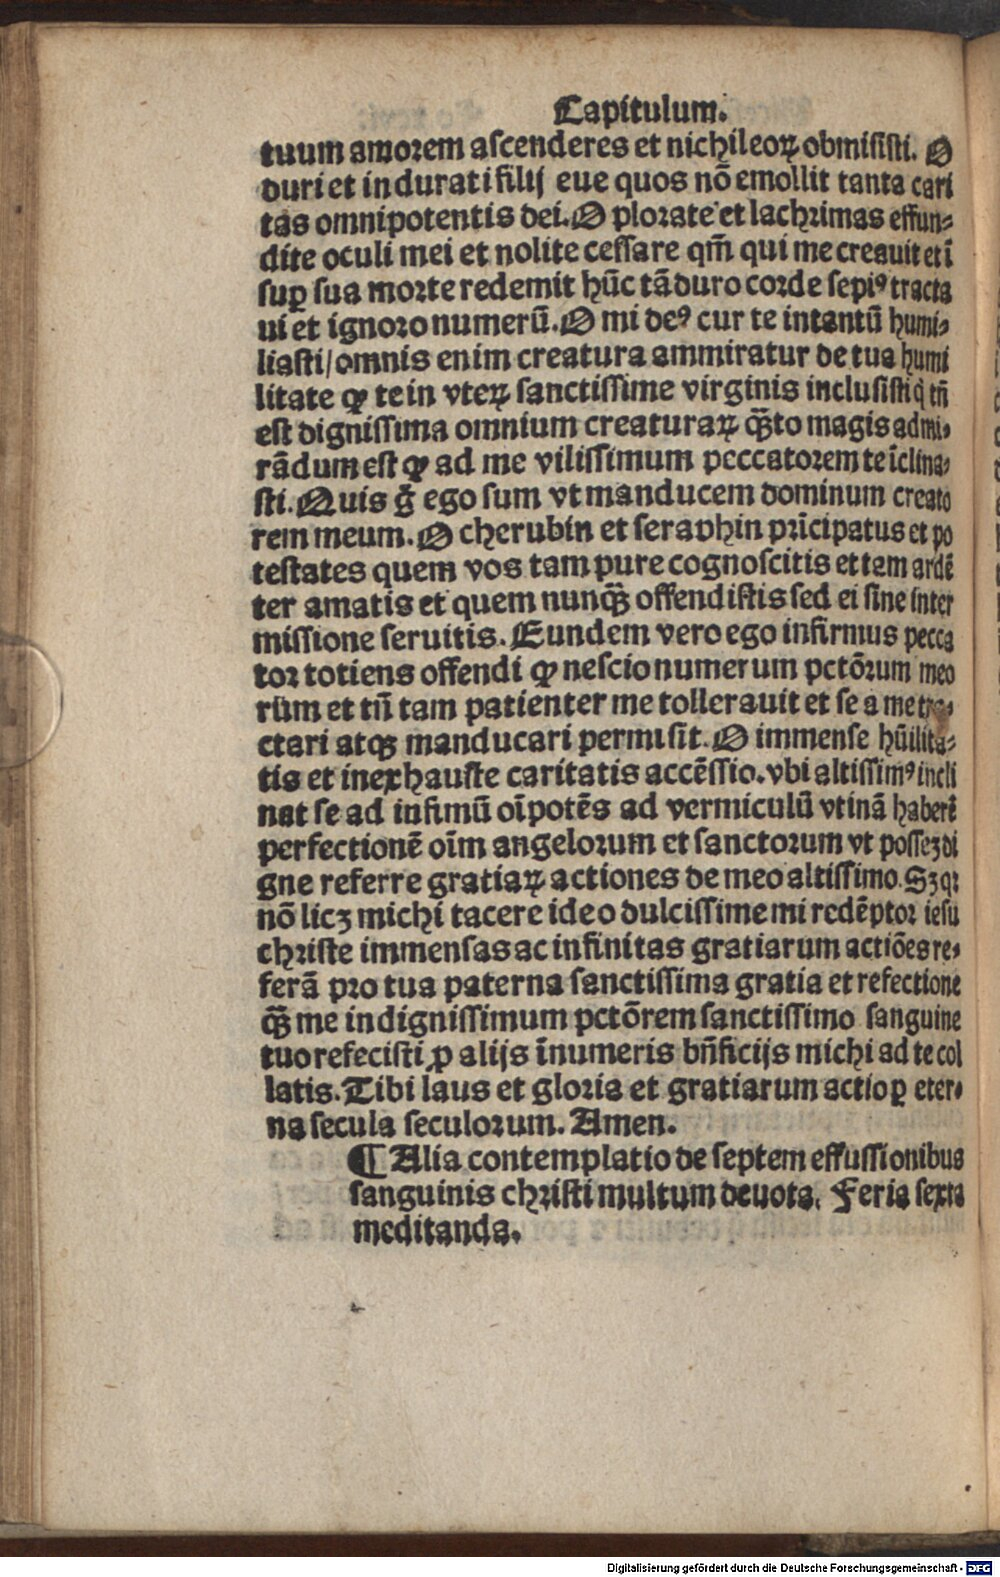 Capitulum.
tuum amorem ascenderes et nichil eoꝝ obmisisti. O
duri et indurati filij eue quos nō emollit tanta cari
tas omnipotentis dei. O plorate et lachrimas effun⸗
dite oculi mei et nolite cessare qm̄ qui me creauit et ī
suꝑ sua morte redemit hūc tā duro corde sepiꝰ tracta
ui et ignoro numerū. O mi deꝰ cur te in tantū humi⸗
liasti/omnis enim creatura ammiratur de tua humi
litate ꝙ te in vteꝝ sanctissime virginis inclusisti q̄ tn̄
est dignissima omnium creaturaꝝ q̄ꝫto magis admi⸗
rādum est ꝙ ad me vilissimum peccatorem te īclina⸗
sti. Quis g̊ ego sum vt manducem dominum creato
rem meum. O cherubin et seraphin prīcipatus et po
testates quem vos tam pure cognoscitis et tam ardē
ter amatis et quem nunq̄ꝫ offendistis sed ei sine inter
missione seruitis. Eundem vero ego infirmus pecca
tor totiens offendi ꝙ nescio numerum pctōrum meo
rum et tn̄ tam patienter me tollerauit et se a me tra⸗
ctari atqꝫ manducari permisit. O immense hūilita⸗
tis et inexhauste caritatis accēssio. vbi altissimꝰ incli
nat se ad infimū oīpotēs ad vermiculū vtinā haberē
perfectionē oīm angelorum et sanctorum vt posseꝫ di
gne referre gratiaꝝ actiones deo meo altissimo. Sꝫ qꝛ
nō licꝫ michi tacere ideo dulcissime mi redēptor iesu
christe immensas ac infinitas gratiarum actiōes re⸗
ferā pro tua paterna sanctissima gratia et refectione
q̄ꝫ me indignissimum pctōrem sanctissimo sanguine
tuo refecisti ꝓ alijs īnumeris bn̄ficijs michi ad te col
latis. Tibi laus et gloria et gratiarum actio ꝑ eter⸗
na secula seculorum. Amen.
¶ Alia contemplatio de septem effussionibus
sanguinis christi multum deuota. Feria sexta
meditanda.
Digitalisierung gefördert durch die Deutsche Forschungsgemeinschaft - DFG